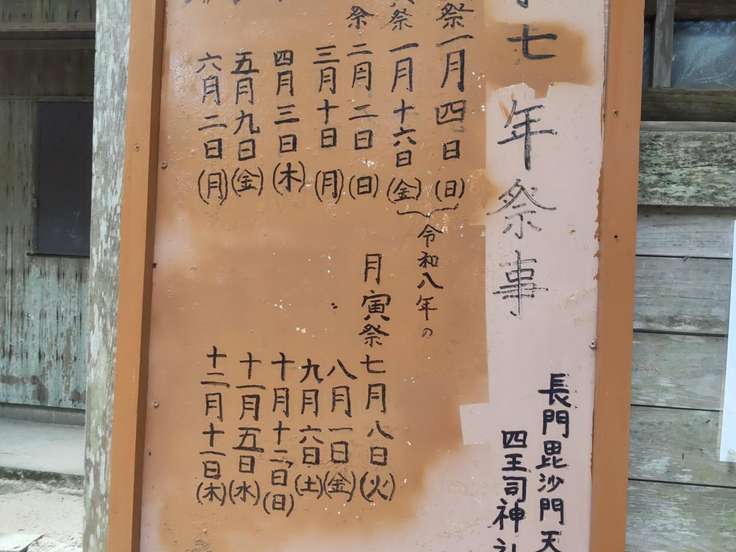 七年祭事
長門毘沙門天
四王司神
祭一月四日(日)
祭一月十六日(金)
令和八年の
祭二月二日(日)
三月十日(月)
四月三日(木)
五月九日(金)
六月二日(月)
月寅祭七月八日(火)
八月一日(金)
九月六日(土)
十月十二日(日)
十一月五日(水)
十二月十一日(木)